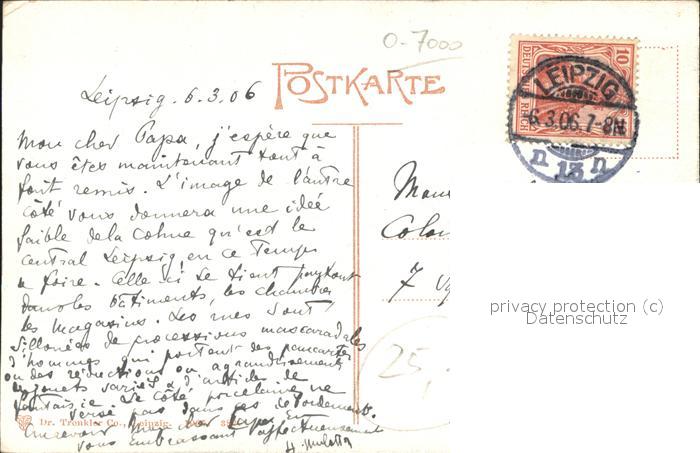 0-7000
POSTKARTE
10
DEUTSCHES REICH
LEIPZIG
6.3.06.7-8N.
n 13 n
Leipzig. 6.3.06
Mon cher Papa, j'espère que
vous êtes maintenant tout à
fait remis. L'image de l'autre
côté vous donnera une idée
faible de la cohue qu'est le
central Leipzig, en ce temps
de foire. Celle ci se tient partout
dans les bâtiments, les chambres
les magasins. Les rues sont
sillonées de processions mascarades
d'hommes qui portent des pancartes
ou des réductions ou agrandissements
de jouets variés & d'articles de
fantaisie. Le côté porcelaine ne
verse pas dans ces débordements.
Au revoir mon cher Papa en
vous embrassant affectueusement
Colo
7
25,
privacy protection (c)
Datenschutz
Dr. Trenkler Co., Leipzig.